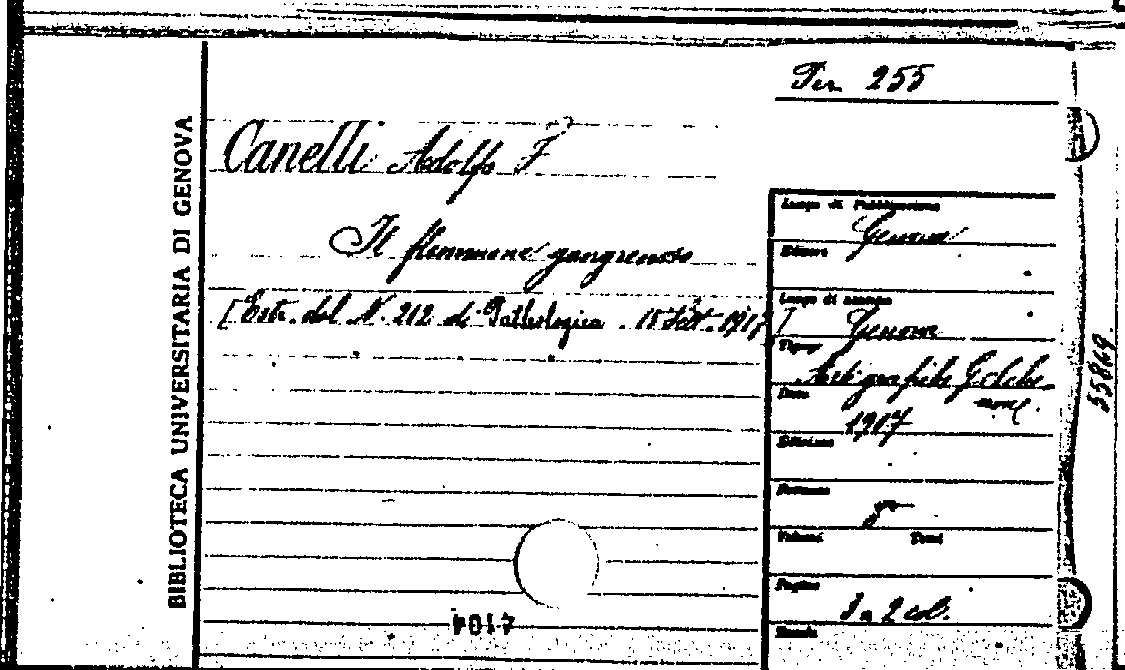 Per 255
BIBLIOTECA UNIVERSITARIA DI GENOVA
Canelli Adolfo F
Il flemmone gangrenoso
[Estr. dal N. 212 di Pathologica. 15 Sett. 1917]
Luogo di Pubblicazione
Genova
Editore
Luogo di stampa
Genova
Tipogr.
Arti grafiche
Data
1917
Edizione
Formato
8°
Volumi Tomi
Pagine
3 a 2 col.
55869